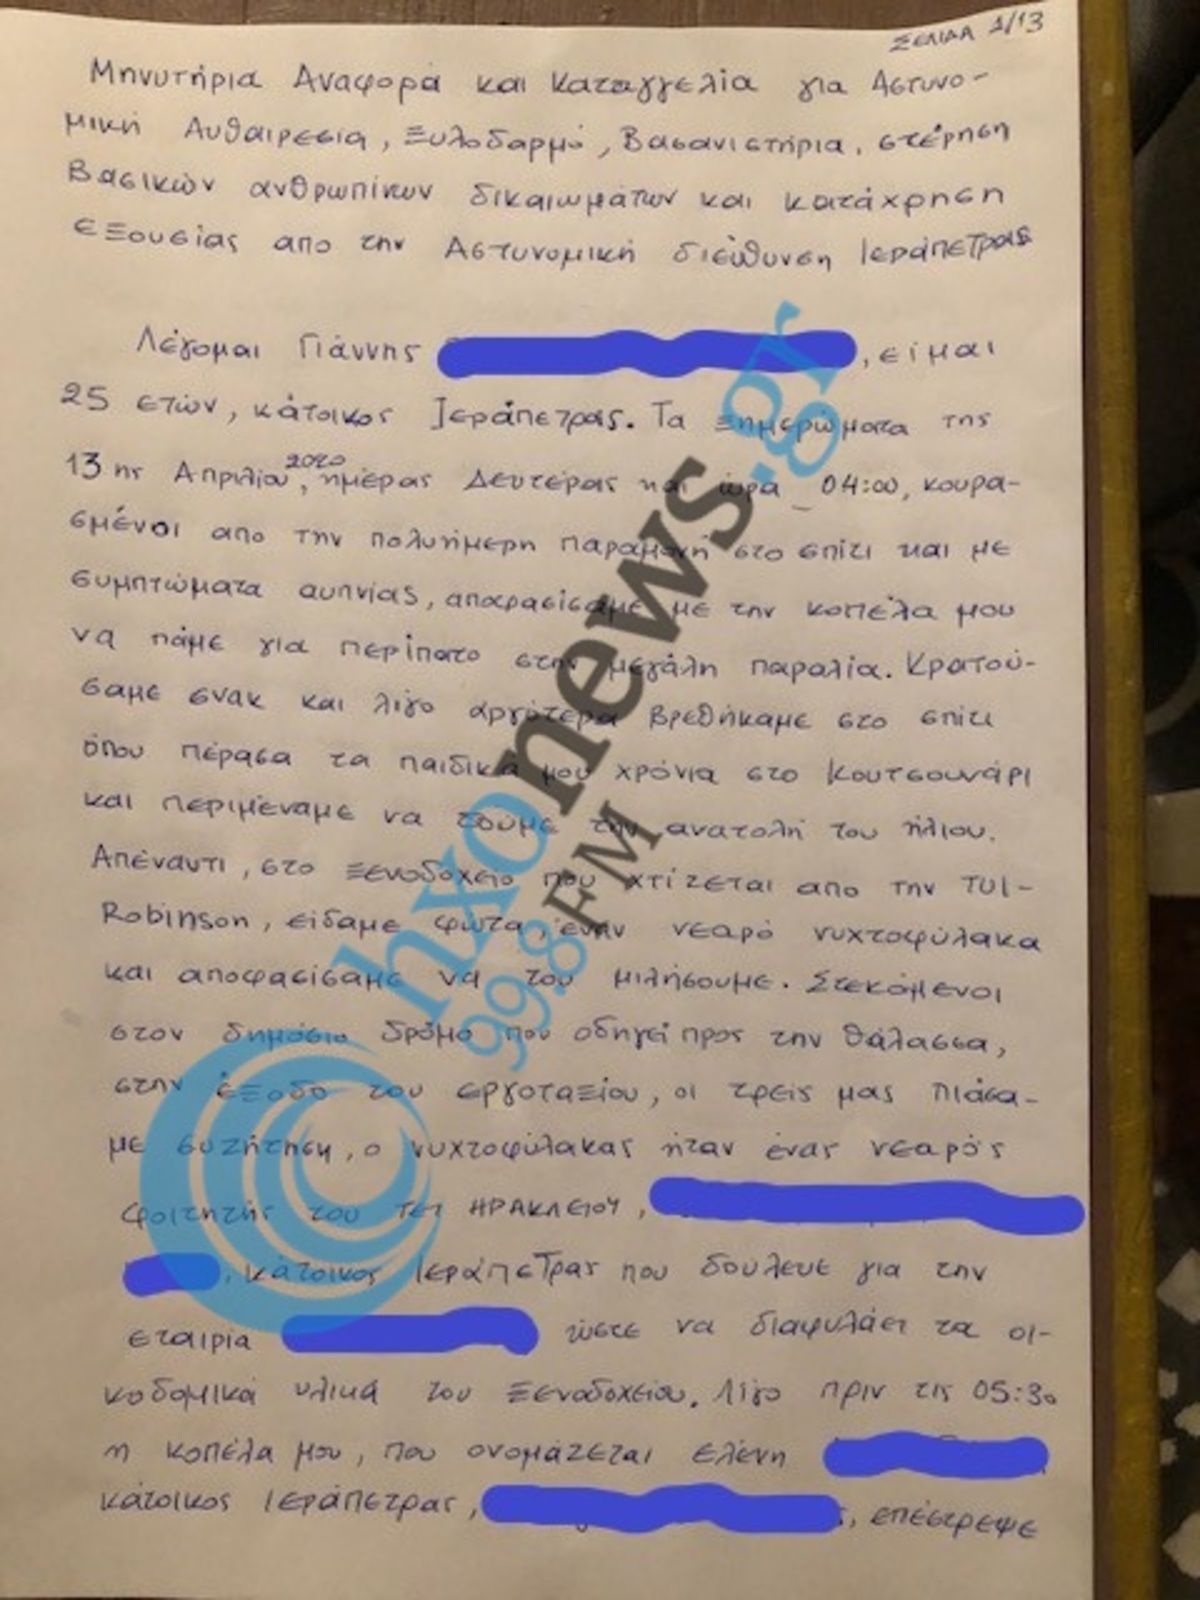 ΣΕΛΙΔΑ 1/13
Μηνυτήρια Αναφορά και Καταγγελία για Αστυνο-
μική Αυθαιρεσία, Ξυλοδαρμό, Βασανιστήρια, στέρηση
Βασικών ανθρωπίνων δικαιωμάτων και κατάχρηση
εξουσίας απο την Αστυνομική διεύθυνση Ιεράπετρας
Λέγομαι Γιάννης , είμαι
25 ετών, κάτοικος Ιεράπετρας. Τα Ξημερώματα της
13ης Απριλίου 2020, ημέρας Δευτέρας και ώρα 04:00, κουρα-
σμένοι απο την πολυήμερη παραμονή στο σπίτι και με
συμπτώματα αυπνίας, αποφασίσαμε με την κοπέλα μου
να πάμε για περίπατο στην μεγάλη παραλία. Κρατού-
σαμε σνακ και λίγο αργότερα βρεθήκαμε στο σπίτι
όπου πέρασα τα παιδικά μου χρόνια στο Κουτσουνάρι
και περιμέναμε να δούμε την ανατολή του ήλιου.
Απέναντι, στο Ξενοδοχείο που χτίζεται απο την TUI-
Robinson, είδαμε φώτα, έναν νεαρό νυχτοφύλακα
και αποφασίσαμε να του μιλήσουμε. Στεκόμενοι
στον δημόσιο δρόμο που οδηγεί προς την θάλασσα,
στην έξοδο του εργοταξίου, οι τρεις μας πιάσα-
με συζήτηση, ο νυχτοφύλακας ήταν ένας νεαρός
φοιτητής του ΤΕΙ ΗΡΑΚΛΕΙΟΥ,
, κάτοικος Ιεράπετρας που δούλευε για την
εταιρία ώστε να διαφυλάει τα οι-
κοδομικά υλικά του Ξενοδοχείου. Λίγο πριν τις 05:30
η κοπέλα μου, που ονομάζεται Ελένη
κάτοικος Ιεράπετρας, , επέστρεψε
ηχοnews.gr
99.8 FM